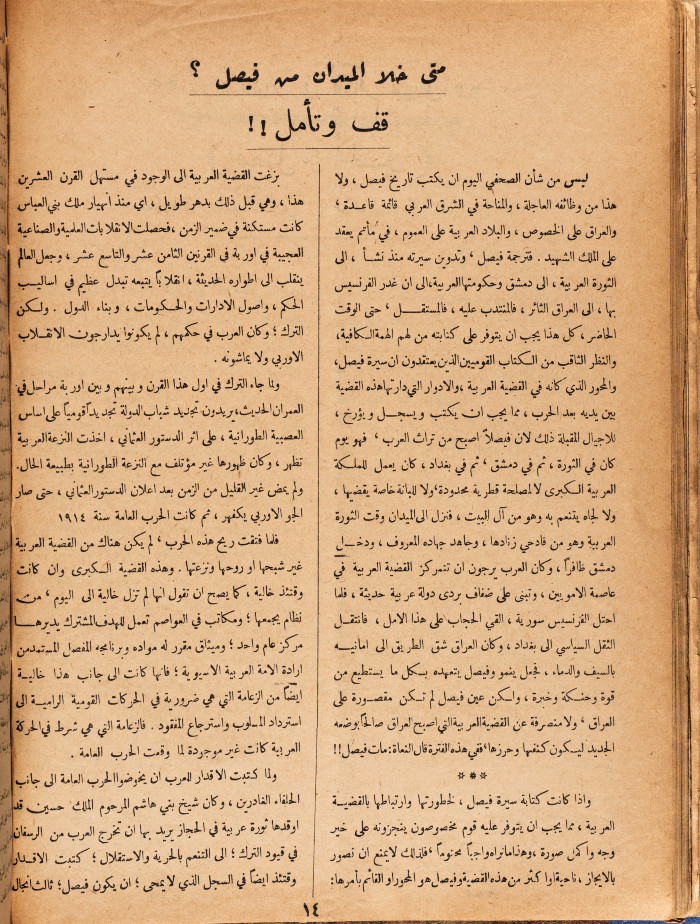 متى خلا الميدان من فيصل ؟
قف وتأمل !!
ليس من شأن الصحفي اليوم ان يكتب تاريخ فيصل ، ولا
هذا من وظائفه العاجلة ، والمناحة في الشرق العربي قائمة قاعدة ،
والعراق على الخصوص ، والبلاد العربية على العموم ، في مأتم يعقد
على الملك الشهيد . فترجمة فيصل ، وتدوين سيرته منذ نشأ ، الى
الثورة العربية ، الى دمشق وحكومتها العربية ، الى ان غدر الفرنسيس
بها ، الى العراق الثائر ، فالمنتدب عليه ، فالمستقل ، حتى الوقت
الحاضر ، كل هذا يجب ان يتوفر على كتابته من لهم الهمة الكافية ،
والنظر الثاقب من الكتاب القوميين الذين يعتقدون ان سيرة فيصل ،
والمحور الذي كانه في القضية العربية ، والادوار التي دارتها هذه القضية
بين يديه بعد الحرب ، مما يجب ان يكتب ويسجل ويؤرخ ،
للاجيال المقبلة ذلك لان فيصلاً اصبح من تراث العرب ، فهو يوم
كان في الثورة ، ثم في دمشق ، ثم في بغداد ، كان يعمل للمملكة
العربية الكبرى لا لمصلحة قطرية محدودة ، ولا للبانة خاصة يقضيها ،
ولا لجاه يتنعم به وهو من آل البيت ، فنزل الى الميدان وقت الثورة
العربية وهو من قادحي زنادها ، وجاهد جهاده المعروف ، ودخل
دمشق ظافراً ، وكان العرب يرجون ان تتمركز القضية العربية في
عاصمة الامويين ، وتبنى على ضفاف بردى دولة عربية حديثة ، فلما
احتل الفرنسيس سورية ، القي الحجاب على هذا الامل ، فانتقل
الثقل السياسي الى بغداد ، وكان العراق شق الطريق الى امانيه
بالسيف والدماء ، فجعل ينمو وفيصل يتعهده بكل ما يستطيع من
قوة وحنكة وخبرة ، ولكن عين فيصل لم تكن مقصورة على
العراق ، ولا منصرفة عن القضية العربية التي اصبح العراق صالحاً بوضعه
الجديد ليكون كنفها وحرزها ، ففي هذه الفترة قال النعاة : مات فيصل !!
***
واذا كانت كتابة سيرة فيصل ، لخطورتها وارتباطها بالقضية
العربية ، مما يجب ان يتوفر عليه قوم مخصوصون ينجزونه على خير
وجه واكمل صورة ، وهذا ما نراه واجباً محتوماً ، فلذلك لا يمنع ان نصور
بالايجاز ، ناحية او اكثر من هذه القضية وفيصل هو المحور او القائم بأمرها :
بزغت القضية العربية الى الوجود في مستهل القرن العشرين
هذا ، وهي قبل ذلك بدهر طويل ، اي منذ انهيار ملك بني العباس
كانت مستكنة في ضمير الزمن ، فحصلت الانقلابات العلمية والصناعية
العجيبة في اوربة في القرنين الثامن عشر والتاسع عشر ، وجعل العالم
ينقلب الى اطواره الحديثة ، انقلاباً يتبعه تبدل عظيم في اساليب
الحكم ، واصول الادارات والحكومات ، وبناء الدول . ولكن
الترك ؛ وكان العرب في حكمهم ، لم يكونوا يدارجون الانقلاب
الاوربي ولا يماشونه .
ولما جاء الترك في اول هذا القرن وبينهم وبين اوربة مراحل في
العمران الحديث ، يريدون تجديد شباب الدولة تجديداً قومياً على اساس
العصبية الطورانية ، على اثر الدستور العثماني ، اخذت النزعة العربية
تظهر ، وكان ظهورها غير مؤتلف مع النزعة الطورانية بطبيعة الحال .
ولم يمض غير القليل من الزمن بعد اعلان الدستور العثماني ، حتى صار
الجو الاوربي يكفهر ، ثم كانت الحرب العامة سنة ١٩١٤
فلما فتقت ريح هذه الحرب ، لم يكن هناك من القضية العربية
غير شبحها او روحها ونزعتها . وهذه القضية الكبرى وان كانت
وقتئذ خالية ، كما يصح ان تقول انها لم تزل خالية الى اليوم ، من
نظام يجمعها ؛ ومكاتب في العواصم تعمل للهدف المشترك يديرها
مركز عام واحد ؛ وميثاق مقرر له مواده وبرنامجه المفصل المستمد من
ارادة الامة العربية الاسيوية ؛ فانها كانت الى جانب هذا خالية
ايضاً من الزعامة التي هي ضرورية في الحركات القومية الرامية الى
استرداد المسلوب واسترجاع المفقود . فالزعامة التي هي شرط في الحركة
العربية كانت غير موجودة لما وقعت الحرب العامة .
ولما كتبت الاقدار للعرب ان يخوضوا الحرب العامة الى جانب
الحلفاء الغادرين ، وكان شيخ بني هاشم المرحوم الملك حسين قد
اوقدها ثورة عربية في الحجاز يريد بها ان تخرج العرب من الرسفان
في قيود الترك ؛ الى التنعم بالحرية والاستقلال ؛ كتبت الاقدار
وقتئذ ايضاً في السجل الذي لا يمحى ؛ ان يكون فيصل ؛ ثالث انجال
١٤